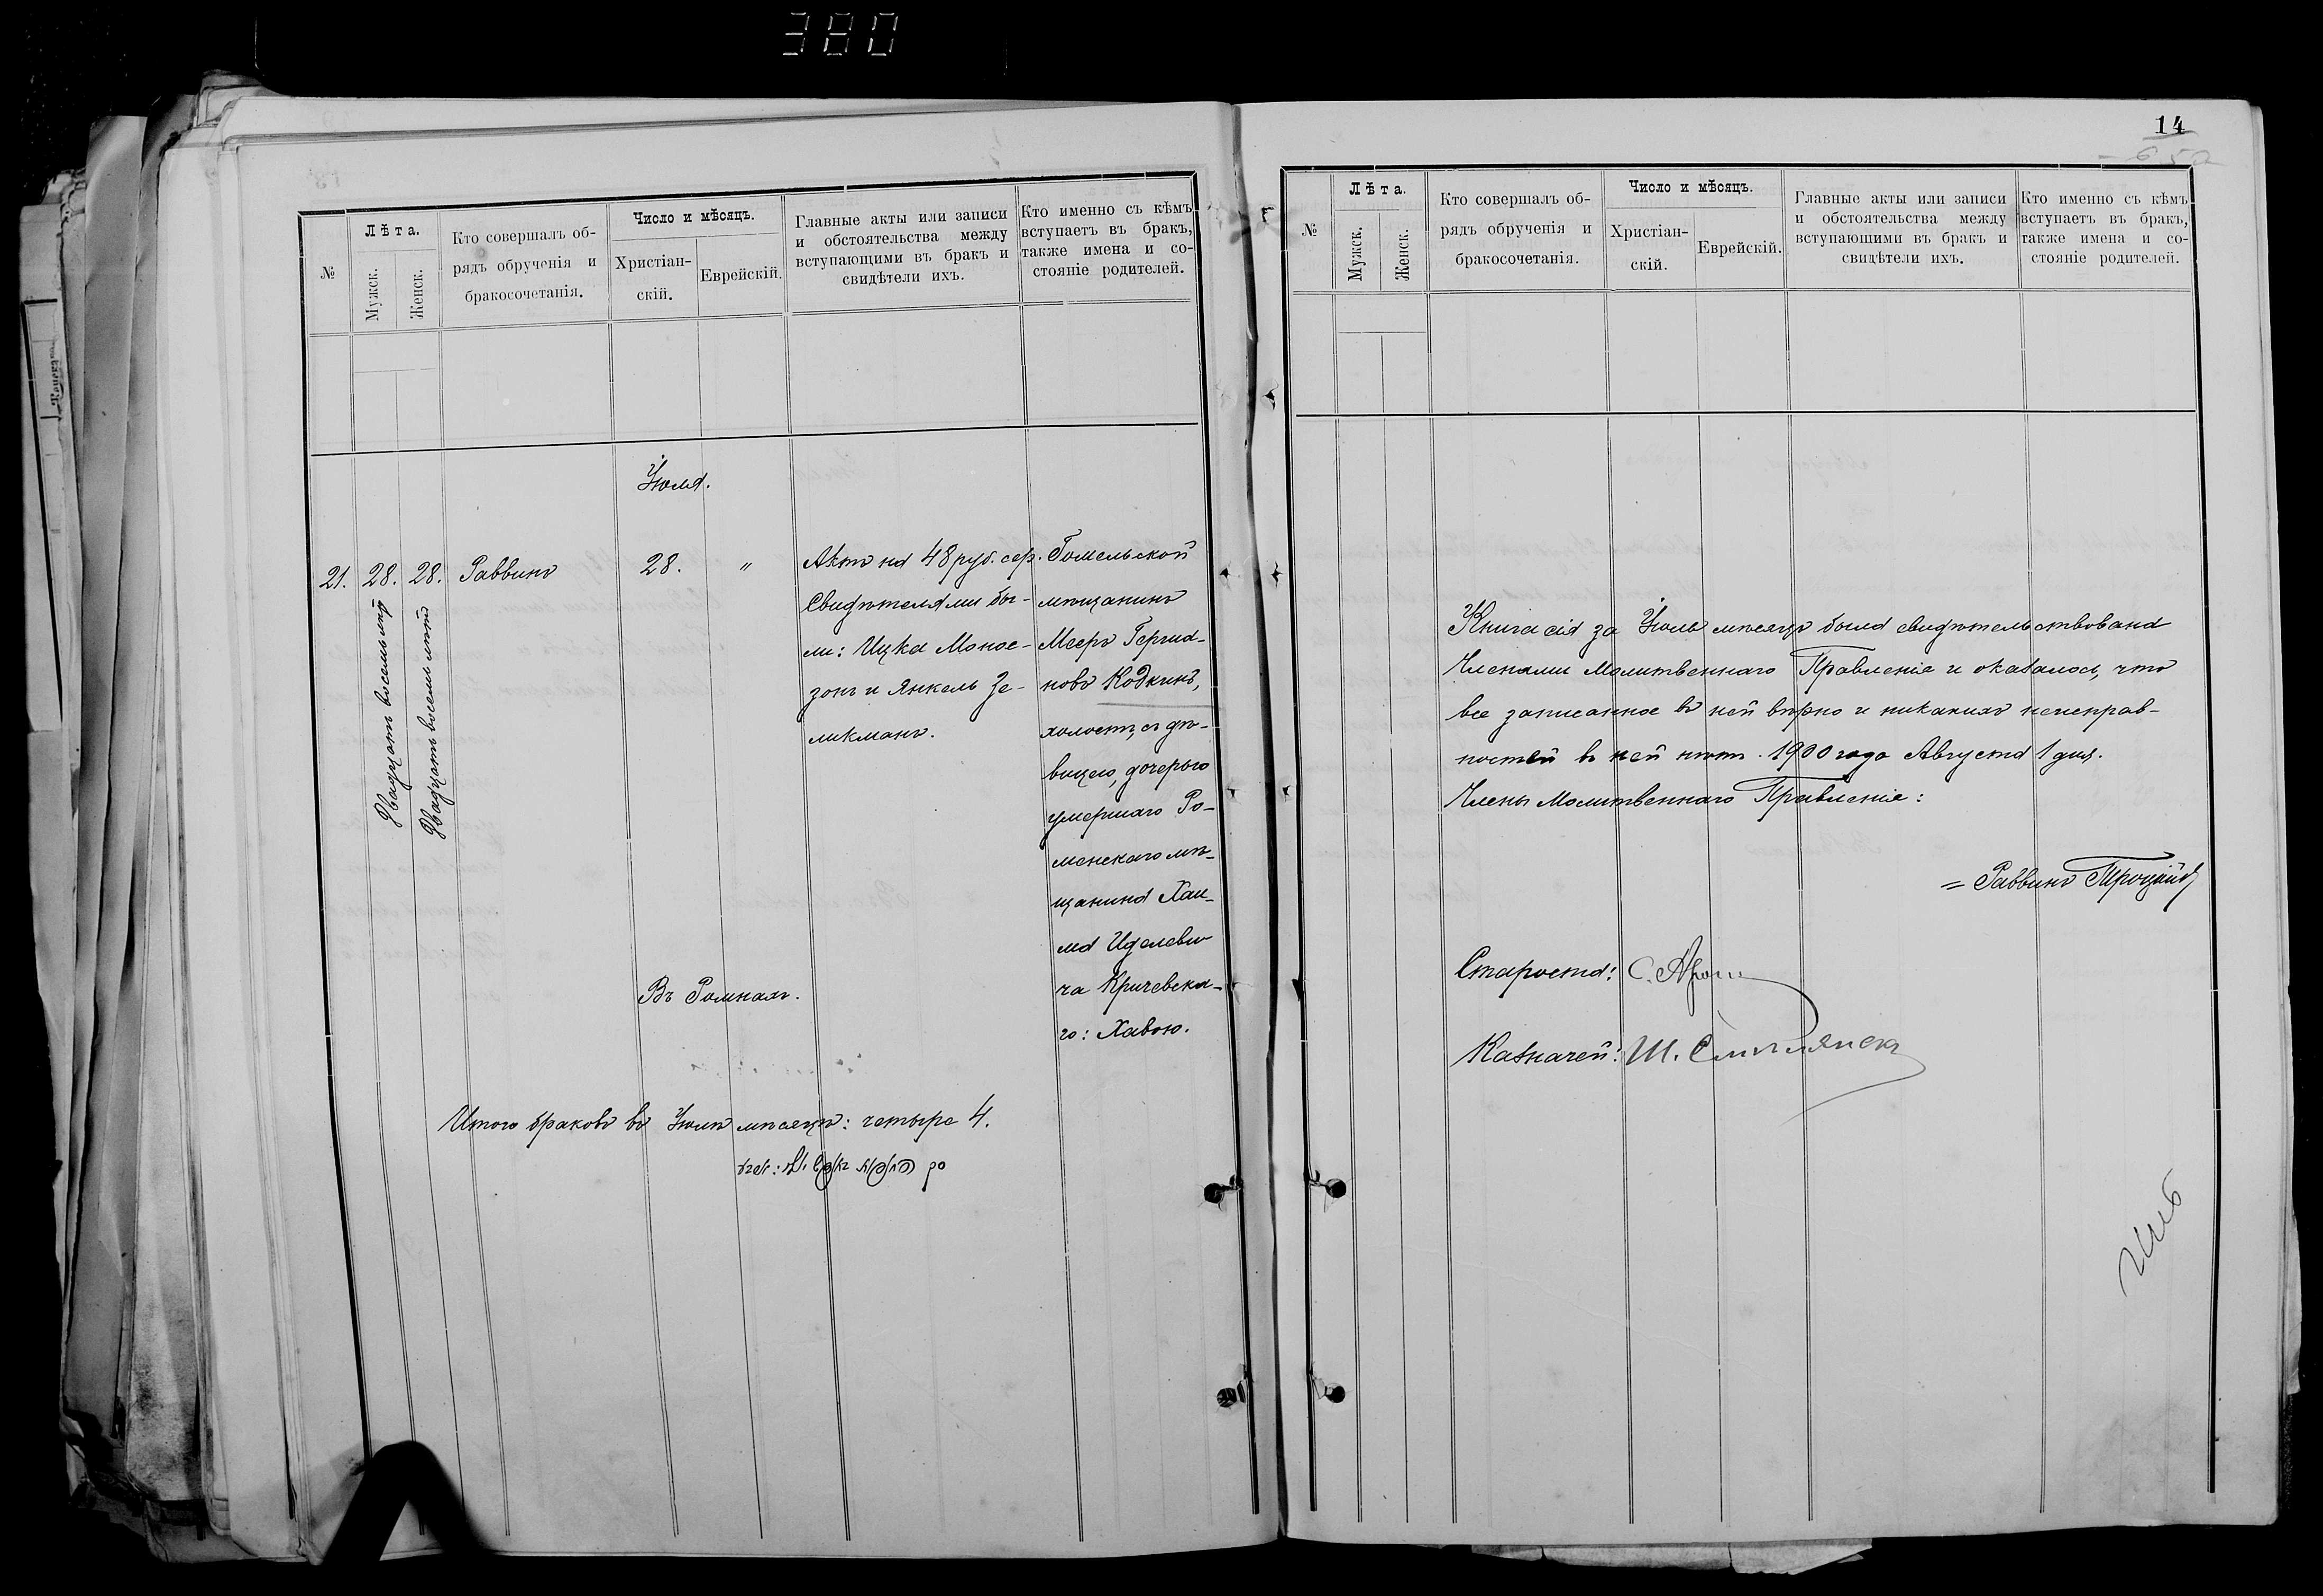 380
№
Лѣта.
Мужск.
Женск.
Кто совершалъ об-
рядъ обрученія и
бракосочетанія.
Число и мѣсяцъ.
Христіан-
скій.
Еврейскій.
Главные акты или записи
и обстоятельства между
вступающими въ бракъ и
свидѣтели ихъ.
Кто именно съ кѣмъ
вступаетъ въ бракъ,
также имена и со-
стояніе родителей.
Іюля.
21.
28.
Двадцать восемь лѣтъ
28.
Двадцать восемь лѣтъ
Раввинъ
28.
"
Актъ на 48 руб. сер.
Свидѣтелями бы-
ли: Ицка Моное-
зонъ и Янкель Зе-
ликманъ.
Гомельской
мѣщанинъ
Мееръ Гершa-
новъ Кодкинъ,
холостъ, съ дѣ-
вицею, дочерью
умершаго Ро-
менскаго мѣ-
щанина Хаи-
ма Иделеви-
ча Кричевска-
го: Хавою.
Въ Ромнахъ.
Итого браковъ въ Іюлѣ мѣсяцѣ: четыре 4.
14
№
Лѣта.
Мужск.
Женск.
Кто совершалъ об-
рядъ обрученія и
бракосочетанія.
Число и мѣсяцъ.
Христіан-
скій.
Еврейскій.
Главные акты или записи
и обстоятельства между
вступающими въ бракъ и
свидѣтели ихъ.
Кто именно съ кѣмъ
вступаетъ въ бракъ,
также имена и со-
стояніе родителей.
Книга сія за Іюль мѣсяцъ была свидѣтельствована
Членами Молитвеннаго Правленія и оказалось, что
все записанное въ ней вѣрно и никакихъ неисправ-
ностей въ ней нѣтъ. 1900 года Августа 1 дня.
Члены Молитвеннаго Правленія:
= Раввинъ Троцкій
Староста:
Казначей: Ш.